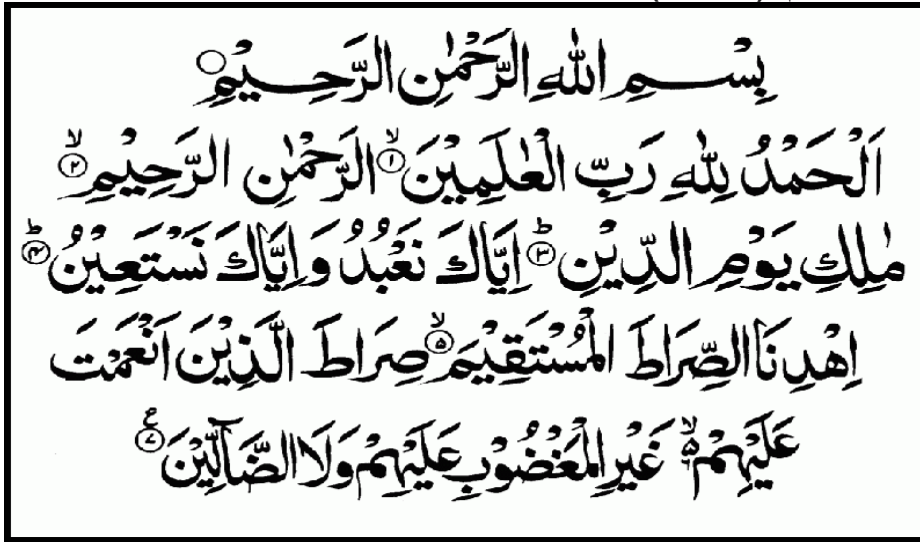 بِسْـــمِ اللّٰهِ الرَّحْمٰنِ الرَّحِـــيْمِ ○
اَلْحَمْدُ لِلّٰهِ رَبِّ الْعٰلَمِيْنَ ۙ﴿۱﴾ الرَّحْمٰنِ الرَّحِيْمِ ۙ﴿۲﴾
مٰلِكِ يَوْمِ الدِّيْنِ ؕ﴿۳﴾ اِيَّاكَ نَعْبُدُ وَاِيَّاكَ نَسْتَعِيْنُ ؕ﴿۴﴾
اِهْدِنَا الصِّرَاطَ الْمُسْتَقِيْمَ ۙ﴿۵﴾ صِرَاطَ الَّذِيْنَ اَنْعَمْتَ
عَلَيْهِمْ ۙ۬ غَيْرِ الْمَغْضُوْبِ عَلَيْهِمْ وَلَا الضَّآلِّيْنَ ﴿۷﴾ ع